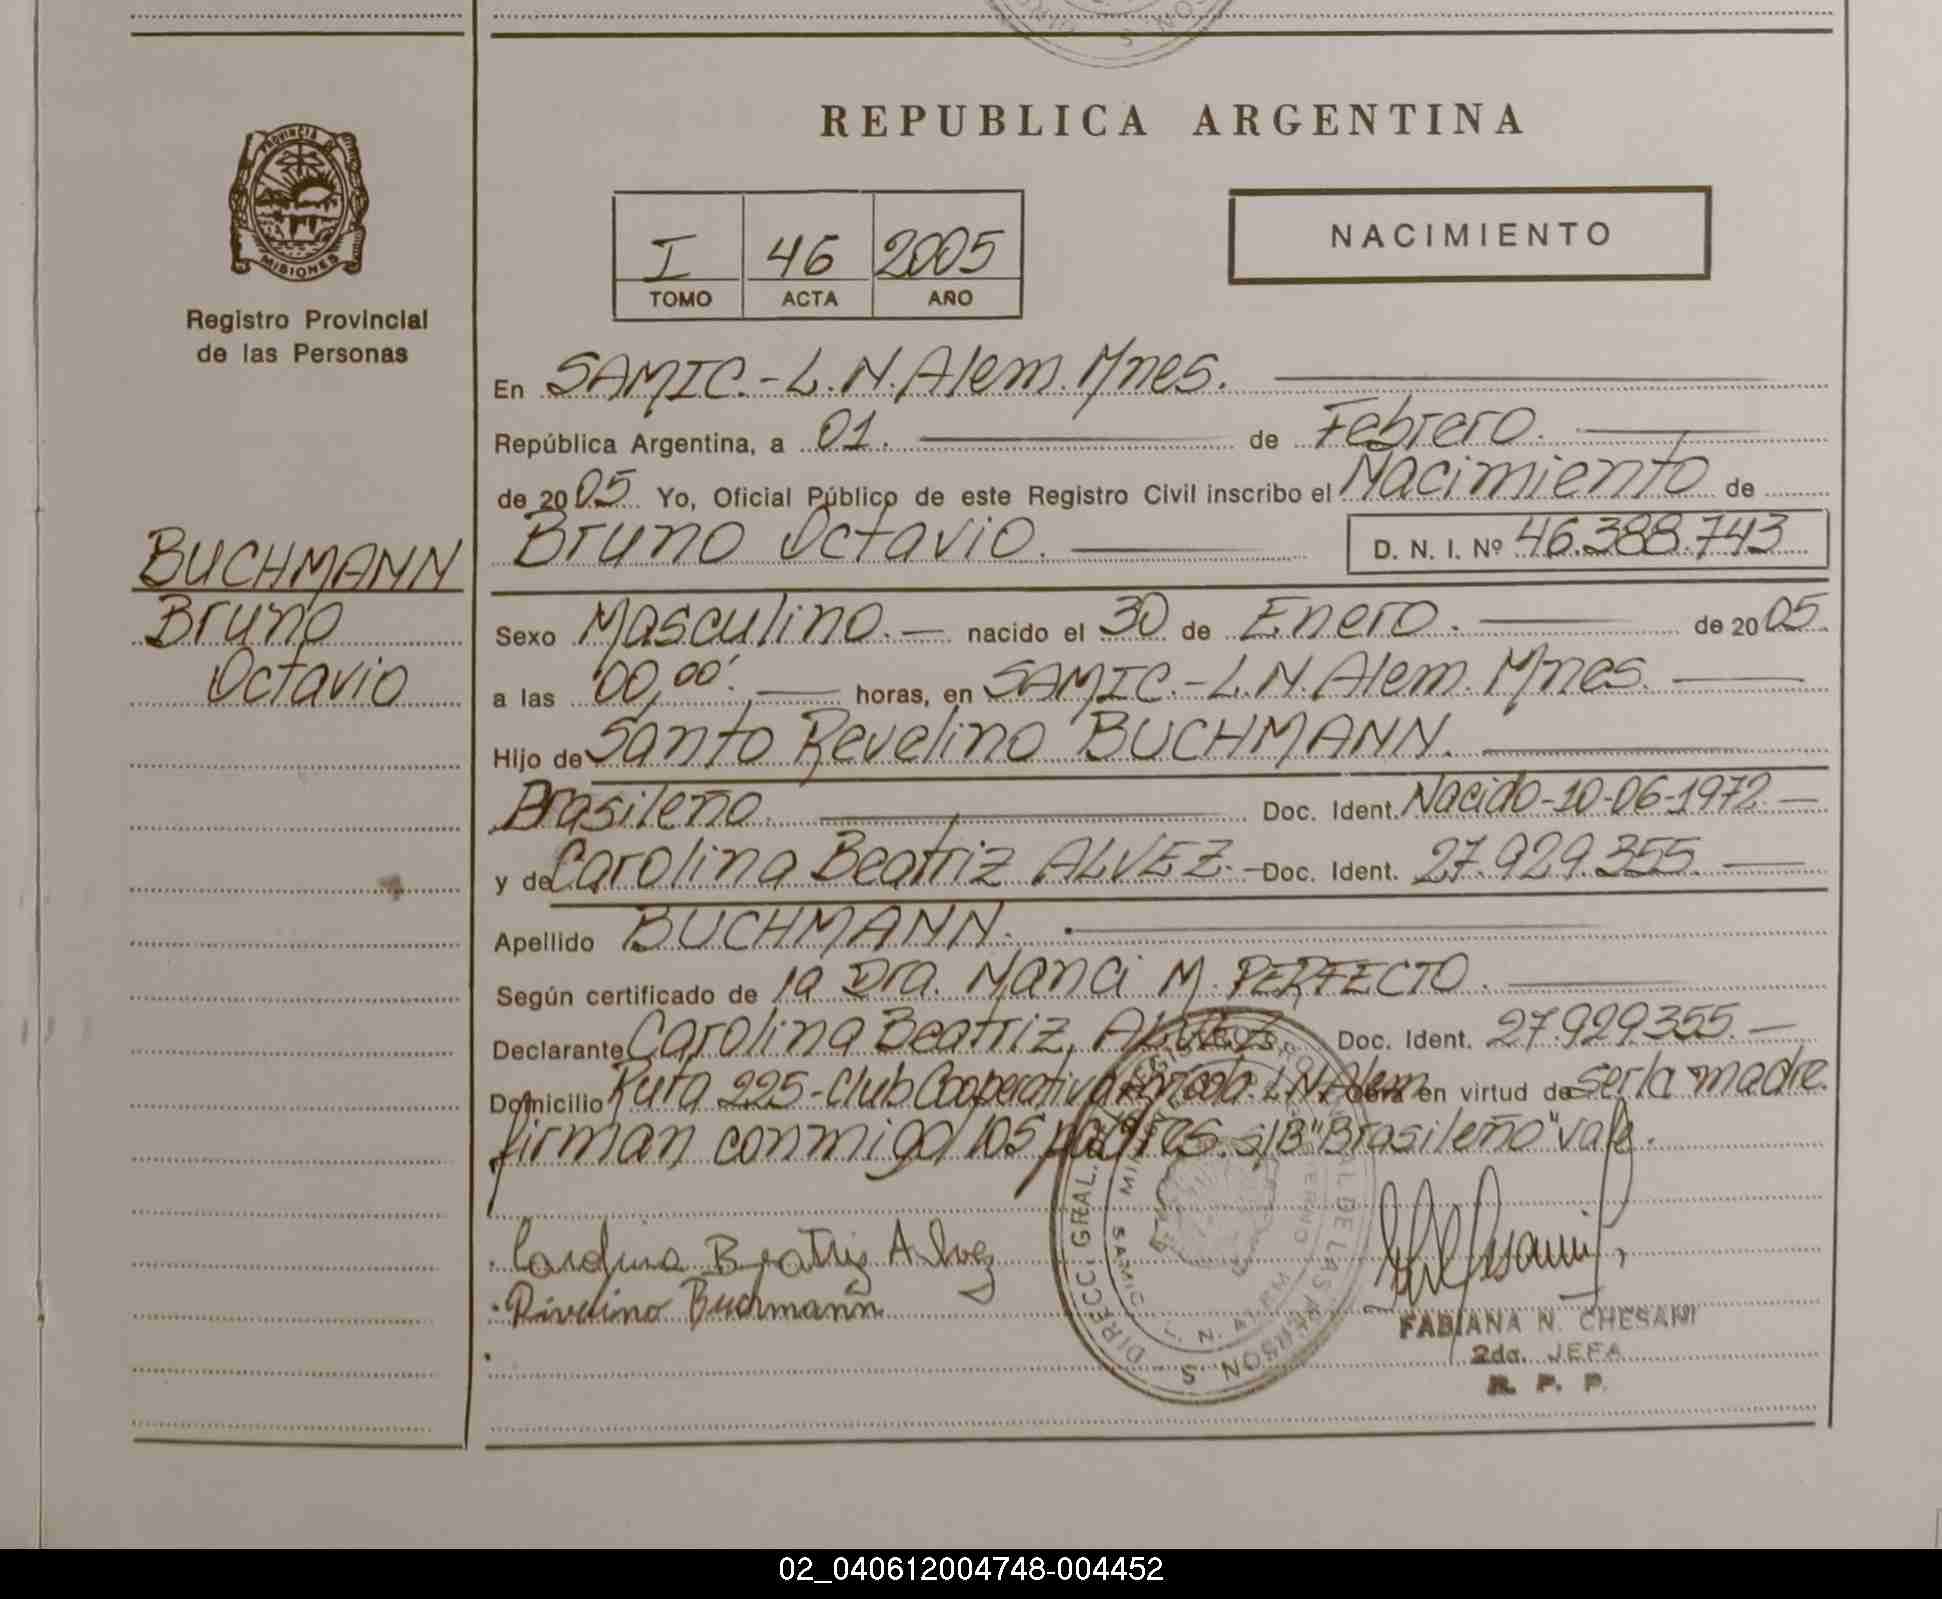 REPUBLICA ARGENTINA
PROVINCIA DE
MISIONES
Registro Provincial
de las Personas
I 46 2005
TOMO ACTA AÑO
NACIMIENTO
En SAMIC.-L.N.Alem.Mnes.
República Argentina, a 01. de Febrero.
de 2005 Yo, Oficial Público de este Registro Civil inscribo el Nacimiento de
Bruno Octavio. D. N. I. Nº 46.388.743
BUCHMANN
Bruno
Octavio
Sexo Masculino.- nacido el 30 de Enero. de 2005.
a las 00,00'. horas, en SAMIC.-L.N.Alem.Mnes.
Hijo de Santo Revelino BUCHMANN.
Brasileño. Doc. Ident. Nacido-10-06-1972.-
y de Carolina Beatriz ALVEZ.- Doc. Ident. 27.929.355.-
Apellido BUCHMANN.
Según certificado de la Dra. Nanci M. PERFECTO.
Declarante Carolina Beatriz ALVEZ Doc. Ident. 27.929.355.-
Domicilio Ruta 225-Club Cooperativa L.N.Alem Obra en virtud de ser la madre.
firman conmigo los padres. s/B "Brasileño" vale.
Carolina Beatriz Alvez
Rivelino Buchmann
DIRECC. GRAL. DE LAS PERSONAS
SAMIC L. N. ALEM
FABIANA N. CHESANI
2da. JEFA
R. P. P.
02_040612004748-004452